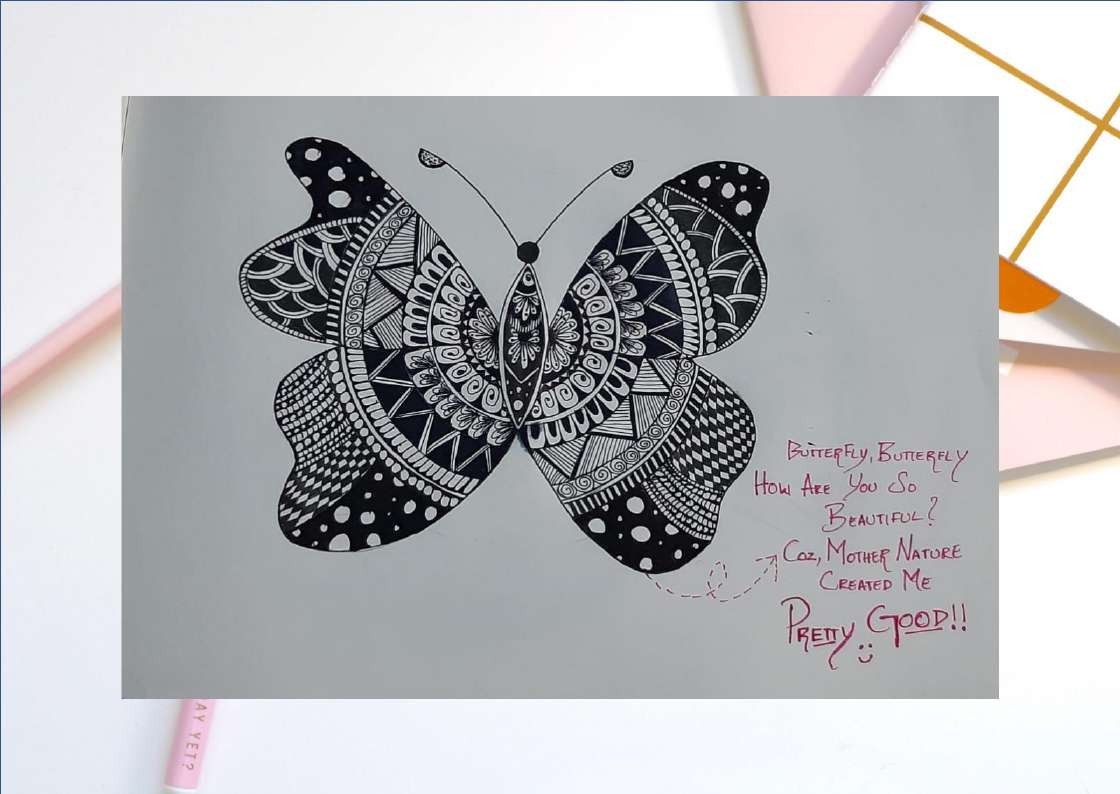 BUTTERFLY, BUTTERFLY
HOW ARE YOU SO
BEAUTIFUL?
COZ, MOTHER NATURE
CREATED ME
PRETTY GOOD!!
AY YET?